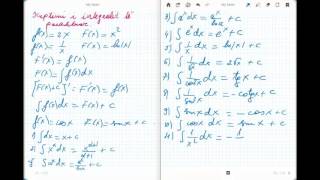 Kuptimi i integralit të
pacaktuar
f(x) = 2x F(x) = x²
f(x) = 1/x F(x) = ln|x|
F'(x) = f(x)
F(x) = ∫f(x)dx
[F(x)+C]' = F'(x) = f(x)
∫f(x)dx = F(x)+C
f(x) = cosx F(x) = sinx + C
1) ∫dx = x + C
2) ∫x^α dx = x^(α+1)/(α+1) + C
3) ∫a^x dx = a^x/lna + C
3) ∫a^x dx = a^x/lna + C
4) ∫e^x dx = e^x + C
5) ∫1/x dx = ln|x| + C
6) ∫1/√x dx = 2√x + C
7) ∫1/cos²x dx = tgx + C
8) ∫1/sin²x dx = -cotgx + C
9) ∫sinx dx = -cosx + C
10) ∫cosx dx = sinx + C
11) ∫1/x² dx = -1/